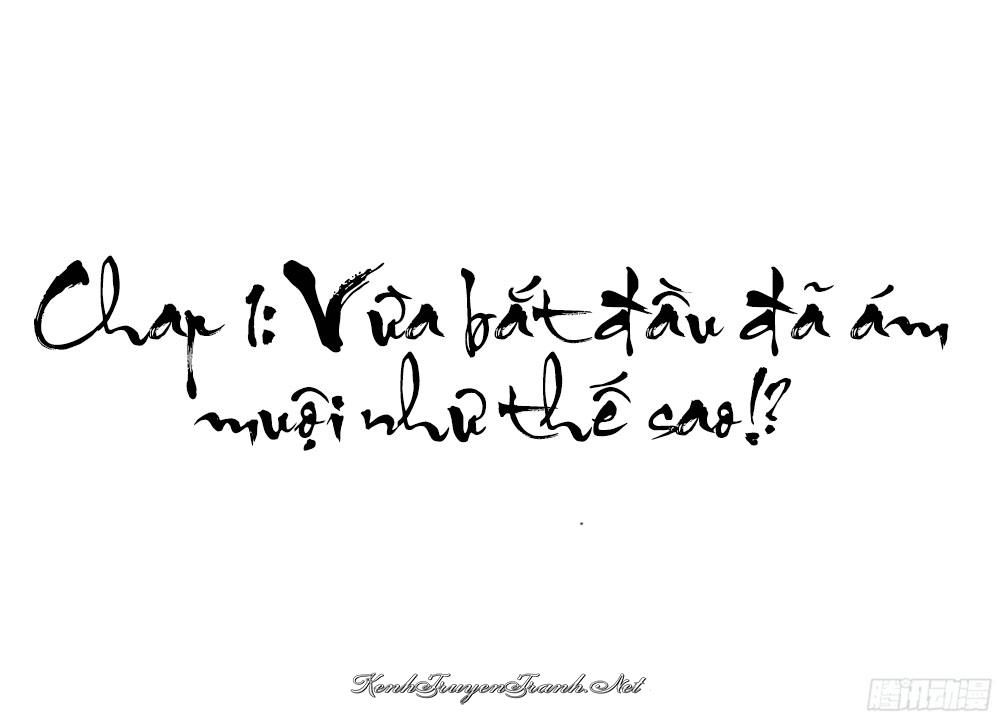 Chap 1: Vừa bắt đầu đã ám
muội như thế sao!?
KenhTruyenTranh.Net
腾讯动漫